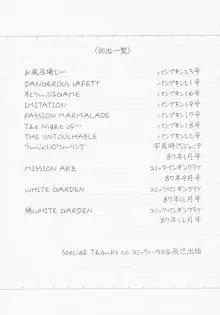 〈初出一覧〉
お風呂場で… パンプキン23号
DANGEROUS SAFETY パンプキン21号
GAME パンプキン16号
IMITATION パンプキン19号
PASSION MARMALADE パンプキン17号
The Night of… パンプキン18号
THE UNTOUCHABLE パンプキン22号
写真時代ジュニア
87年1月号
MISSION AKB コミックペンギンクラブ
87年9月号
WHITE GARDEN コミックペンギンクラブ
87年11月号
続WHITE GARDEN コミックペンギンクラブ
87年12月号
Special Thanks to コミックハウス&辰巳出版